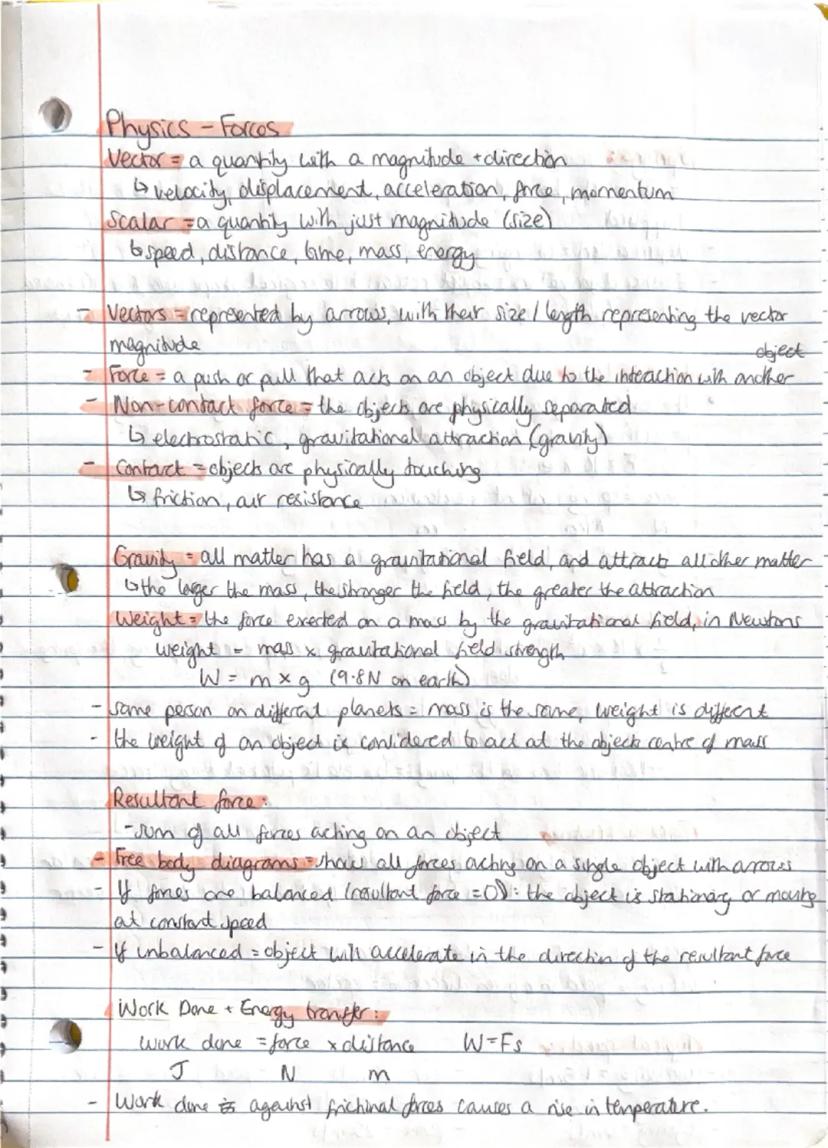 Physics - Forces
Vector = a quantity with a magnitude + direction
↳ velocity, displacement, acceleration, force, momentum
Scalar = a quantity with just magnitude (size)
↳ speed, distance, time, mass, energy
- Vectors = represented by arrows, with their size / length representing the vector
magnitude
object
- Force = a push or pull that acts on an object due to the interaction with another
- Non-contact force = the objects are physically separated
↳ electrostatic, gravitational attraction (gravity)
- contact = objects are physically touching
↳ friction, air resistance
Gravity = all matter has a gravitational field, and attracts all other matter
↳ the larger the mass, the stronger the field, the greater the attraction
Weight = the force exerted on a mass by the gravitational field, in Newtons
weight = mass x gravitational field strength
W = m x g (9.8N on earth)
- same person on different planets = mass is the same, weight is different
- the weight of an object is considered to act at the objects centre of mass
Resultant force:
- sum of all forces acting on an object
- Free body diagrams = show all forces acting on a single object with arrows
- If forces are balanced (resultant force = 0): the object is stationary or moving
at constant speed
- If unbalanced = object will accelerate in the direction of the resultant force
Work Done + Energy transfer:
work done = force x distance W=Fs
J N m
- Work done against frictional forces causes a rise in temperature.